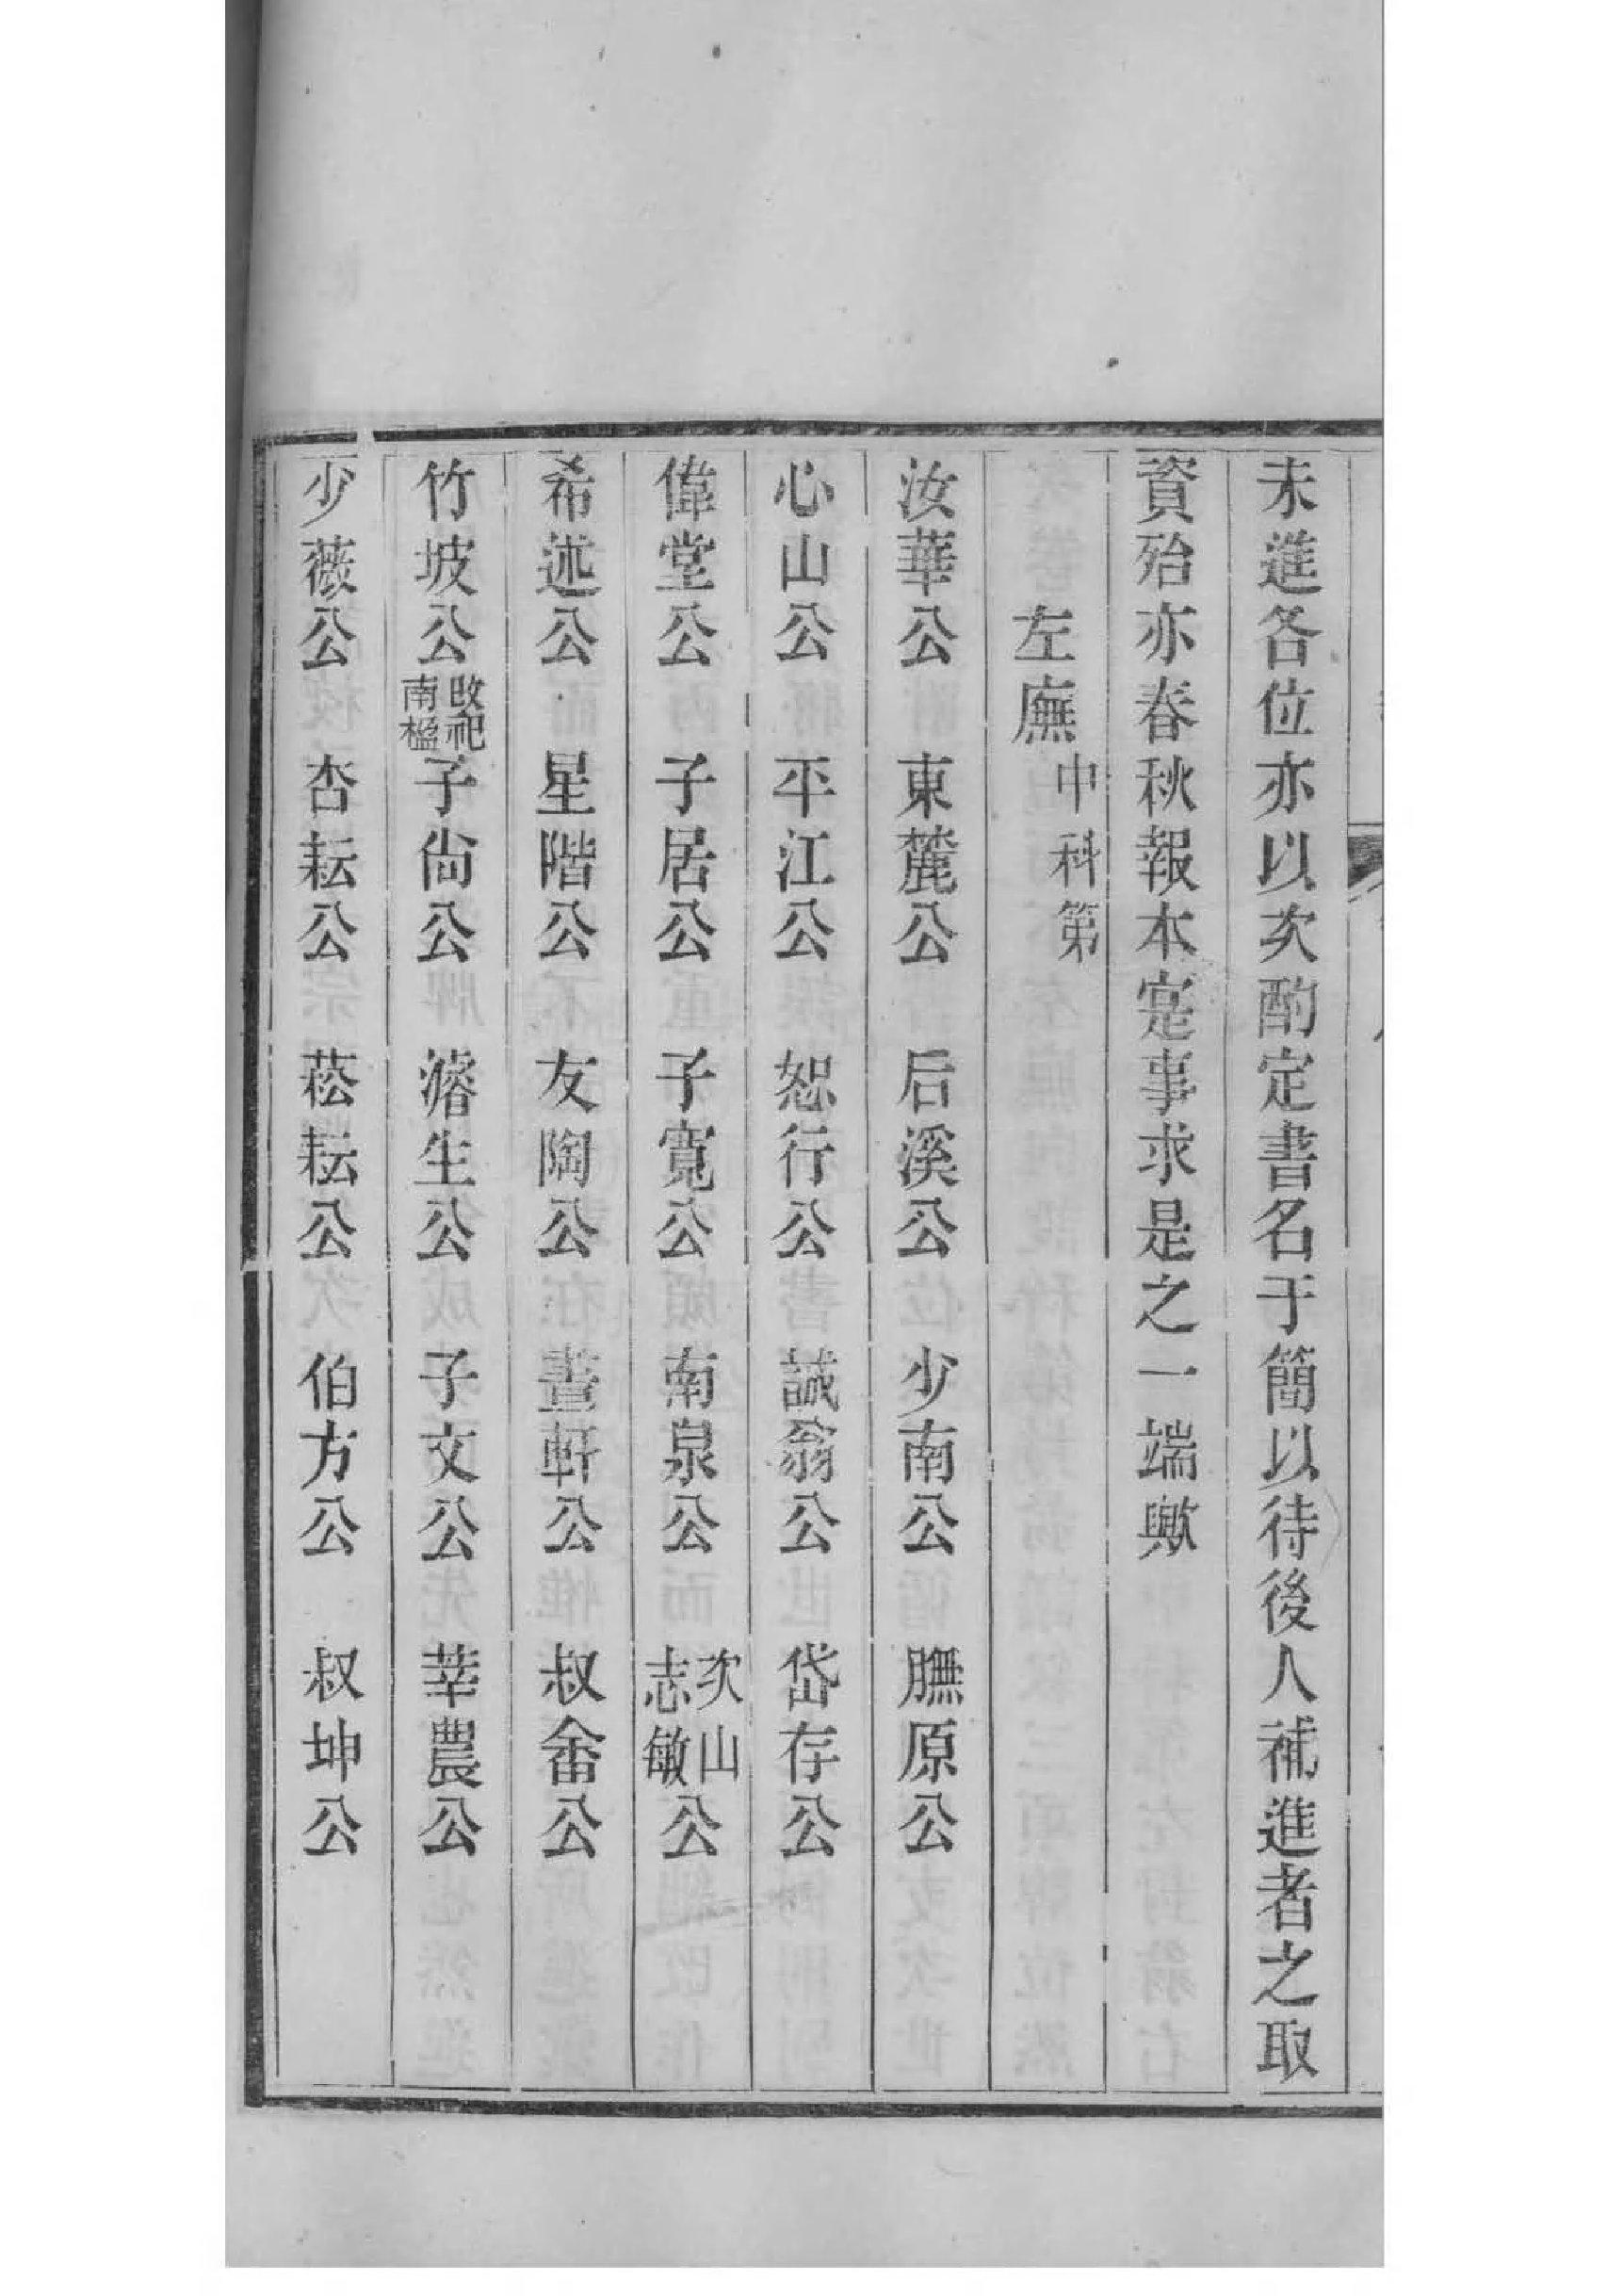 未進各位亦以次酌定書名于簡以待後人補進者之取
資殆亦春秋報本寔事求是之一端歟
左廡 中科第
汝華公 東麓公 后溪公 少南公 膴原公
心山公 平江公 恕行公 誠翁公 岱存公
偉堂公 子居公 子寬公 南泉公 次山志敏公
希述公 星階公 友陶公 晝軒公 叔畬公
竹坡公 改祀南楹 子尙公 濬生公 子文公 莘農公
少薇公 杏耘公 菘耘公 伯方公 叔坤公